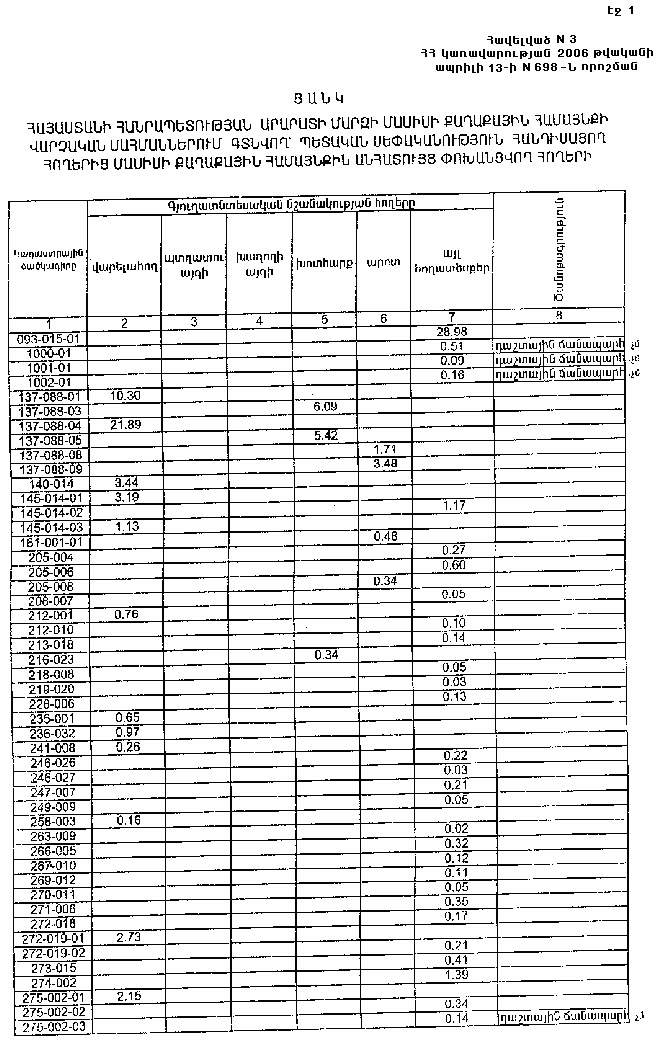 Էջ 1
Հավելված N 3
ՀՀ կառավարության 2006 թվականի
ապրիլի 13-ի N 698 -Ն որոշման
ՑԱՆԿ
ՀԱՅԱՍՏԱՆԻ ՀԱՆՐԱՊԵՏՈՒԹՅԱՆ ԱՐԱՐԱՏԻ ՄԱՐԶԻ ՄԱՍԻՍԻ ՔԱՂԱՔԱՅԻՆ ՀԱՄԱՅՆՔԻ
ՎԱՐՉԱԿԱՆ ՍԱՀՄԱՆՆԵՐՈՒՄ ԳՏՆՎՈՂ՝ ՊԵՏԱԿԱՆ ՍԵՓԱԿԱՆՈՒԹՅՈՒՆ ՀԱՆԴԻՍԱՑՈՂ
ՀՈՂԵՐԻՑ ՄԱՍԻՍԻ ՔԱՂԱՔԱՅԻՆ ՀԱՄԱՅՆՔԻՆ ԱՆՀԱՏՈՒՅՑ ՓՈԽԱՆՑՎՈՂ ՀՈՂԵՐԻ
Կադաստրային ծածկագիրը
Գյուղատնտեսական նշանակության հողերը
Ծանոթագրություն
վարելահող պտղատու այգի խաղողի այգի խոտհարք արոտ այլ հողատեսքեր
1 2 3 4 5 6 7 8
093-015-01 28.98
1000-01 0.51 դաշտային ճանապարհ
1001-01 0.09 դաշտային ճանապարհ
1002-01 0.16 դաշտային ճանապարհ
137-088-01 10.30
137-088-03 6.09
137-088-04 21.89
137-088-05 5.42
137-088-08 1.71
137-088-09 3.48
140-014 3.44
145-014-01 3.19
145-014-02 1.17
145-014-03 1.13
161-001-01 0.48
205-004 0.27
205-006 0.60
205-008 0.34
206-007 0.05
212-001 0.76
212-010 0.10
213-018 0.14
216-023 0.34
218-008 0.05
219-020 0.03
226-006 0.13
235-001 0.65
236-032 0.97
241-008 0.26
246-026 0.22
246-027 0.03
247-007 0.21
249-009 0.05
258-003 0.16
263-009 0.02
266-005 0.32
267-010 0.12
269-012 0.11
270-011 0.05
271-006 0.35
272-018 0.17
272-019-01 2.73
272-019-02 0.21
273-015 0.41
274-002 1.39
275-002-01 2.15
275-002-02 0.34
275-002-03 0.14 դաշտային ճանապարհ